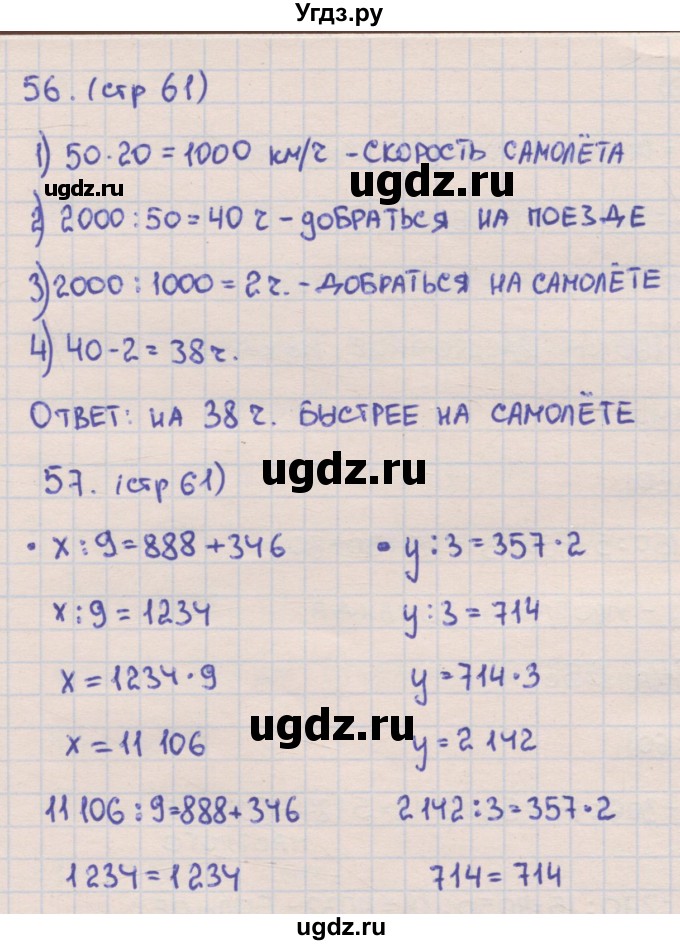 Угдз.ру
56. (стр 61)
1) 50·20=1000 км/ч -СКОРОСТЬ САМОЛЁТА
ugdz.ru ugdz.ru
2) 2000:50=40 ч -ДОБРАТЬСЯ НА ПОЕЗДЕ
3) 2000:1000=2ч. -ДОБРАТЬСЯ НА САМОЛЁТЕ
4) 40-2=38ч.
ОТВЕТ: НА 38 ч. БЫСТРЕЕ НА САМОЛЁТЕ
ugdz.ru
57. (стр 61)
• x:9=888+346 • y:3=357·2
x:9=1234 y:3=714
x=1234·9 y=714·3
ugdz.ru
x=11 106 y=2 142
11 106:9=888+346 2 142:3=357·2
ugdz.ru
1234=1234 714=714
ugdz.ru